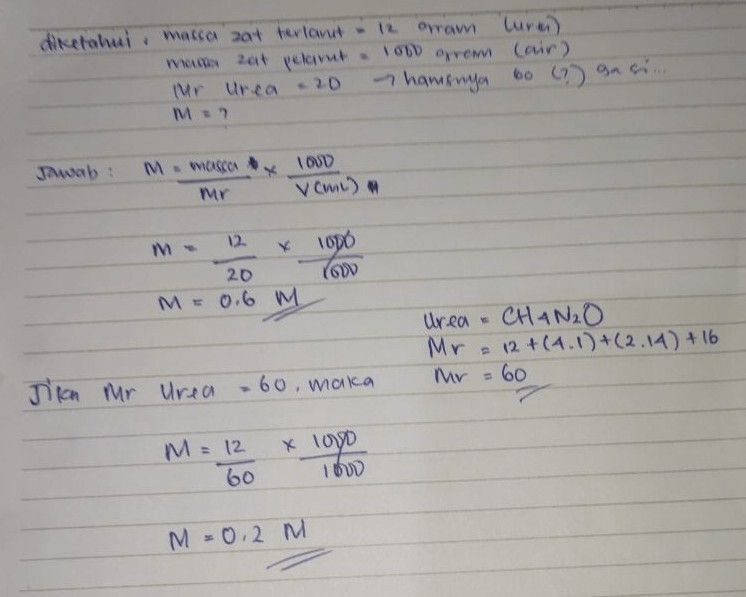 diketahui : massa zat terlarut = 12 gram (urea)
massa zat pelarut = 1000 gram (air)
Mr Urea = 20 → harusnya 60 (?) ga si...
M = ?
Jawab : M = massa/Mr × 1000/V(mL)
M = 12/20 × 1000/1000
M = 0.6 M
Urea = CH4N2O
Mr = 12 + (4.1) + (2.14) + 16
Mr = 60
Jika Mr Urea = 60, maka
M = 12/60 × 1000/1000
M = 0.2 M